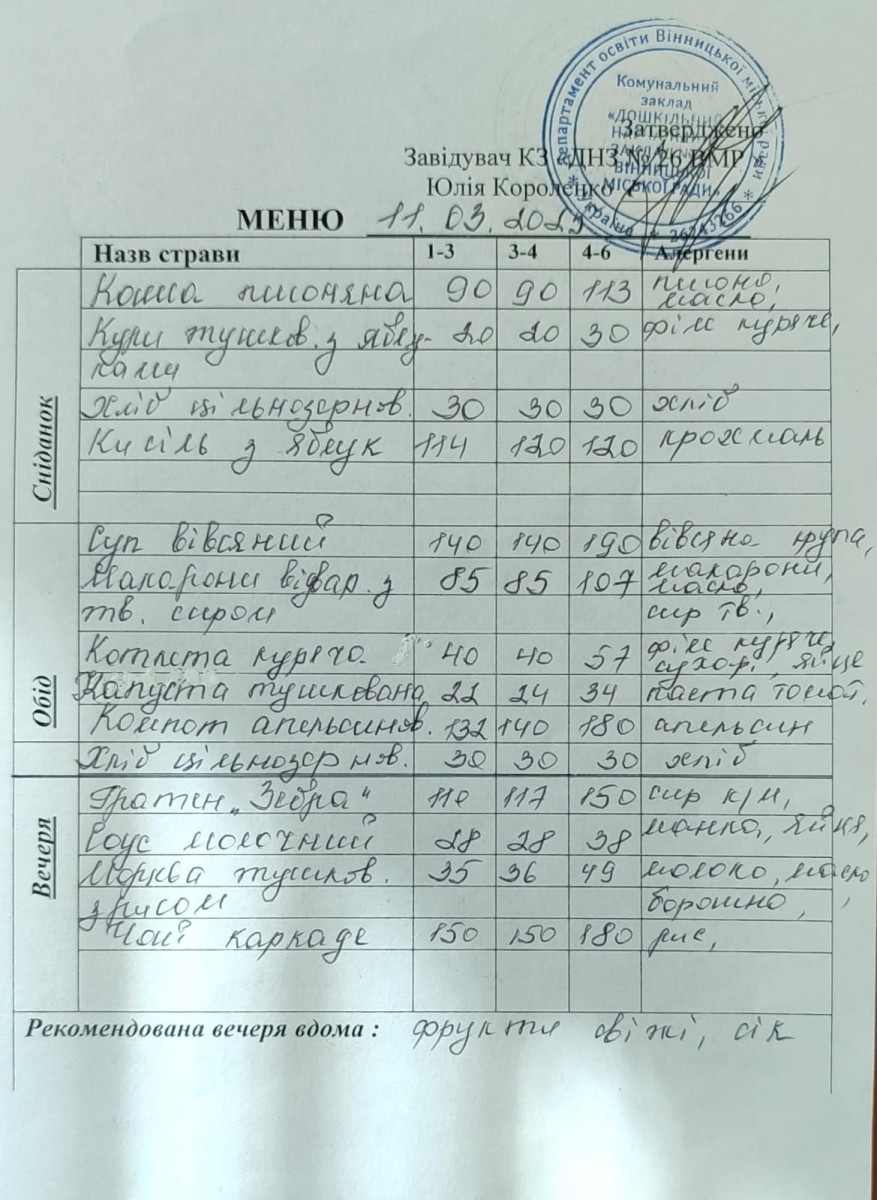 Департамент освіти Вінницької міської ради
Комунальний
заклад
«ДОШКІЛЬНИЙ
ВІННИЦЬКОЇ
МІСЬКОЇ РАДИ»
Україна * 26243266 *
Затверджено
Завідувач КЗ «ДНЗ № 26 ВМР
Юлія Короленко
МЕНЮ 11.03.2025
Назв страви 1-3 3-4 4-6 Алергени
Сніданок
Каша пшоняна 90 90 113 пшоно, масло,
Кури тушков. з яблу- 20 20 30 філе куряче,
ками
Хліб цільнозернов. 30 30 30 хліб
Кисіль з яблук 114 120 120 крохмаль
Обід
Суп вівсяний 140 140 190 вівсяна крупа,
Макарони відвар. з 85 85 107 макарони, масло,
тв. сиром сир тв.,
Котлета куряча 40 40 57 філе куряче, сухар., яйце
Капуста тушкована 22 24 34 паста томат.
Компот апельсинов. 132 140 180 апельсин
Хліб цільнозернов. 30 30 30 хліб
Вечеря
Гратен „Зебра“ 110 117 150 сир к/м,
Соус молочний 28 28 38 манка, яйця,
Морква тушков. 35 36 49 молоко, масло,
з рисом борошно,
Чай каркаде 150 150 180 рис,
Рекомендована вечеря вдома : фрукти свіжі, сік